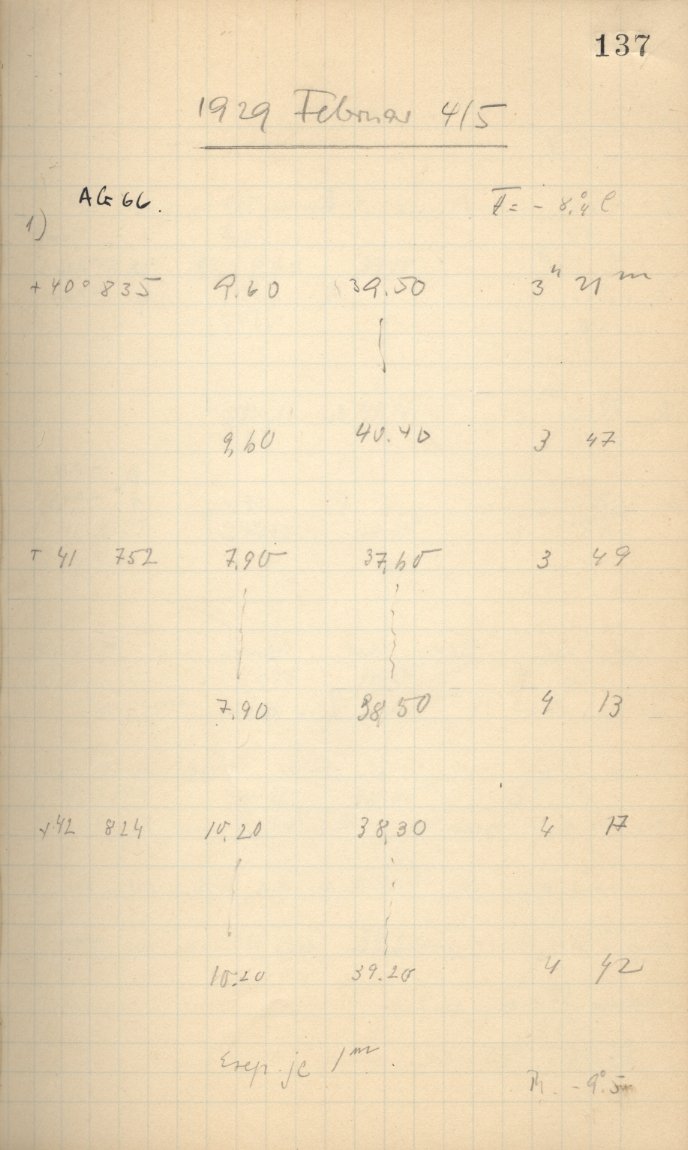 137
1929 Februar 4/5
AG 66.
T = - 8°,4 C
1)
+40° 835 9.60 39.50 3h 21m
9,60 40.40 3 47
+ 41 752 7,90 37,60 3 49
7,90 38,50 4 13
+42 824 10,20 38,30 4 17
10.20 39.20 4 42
Exp. je 1m.
- 9°.5